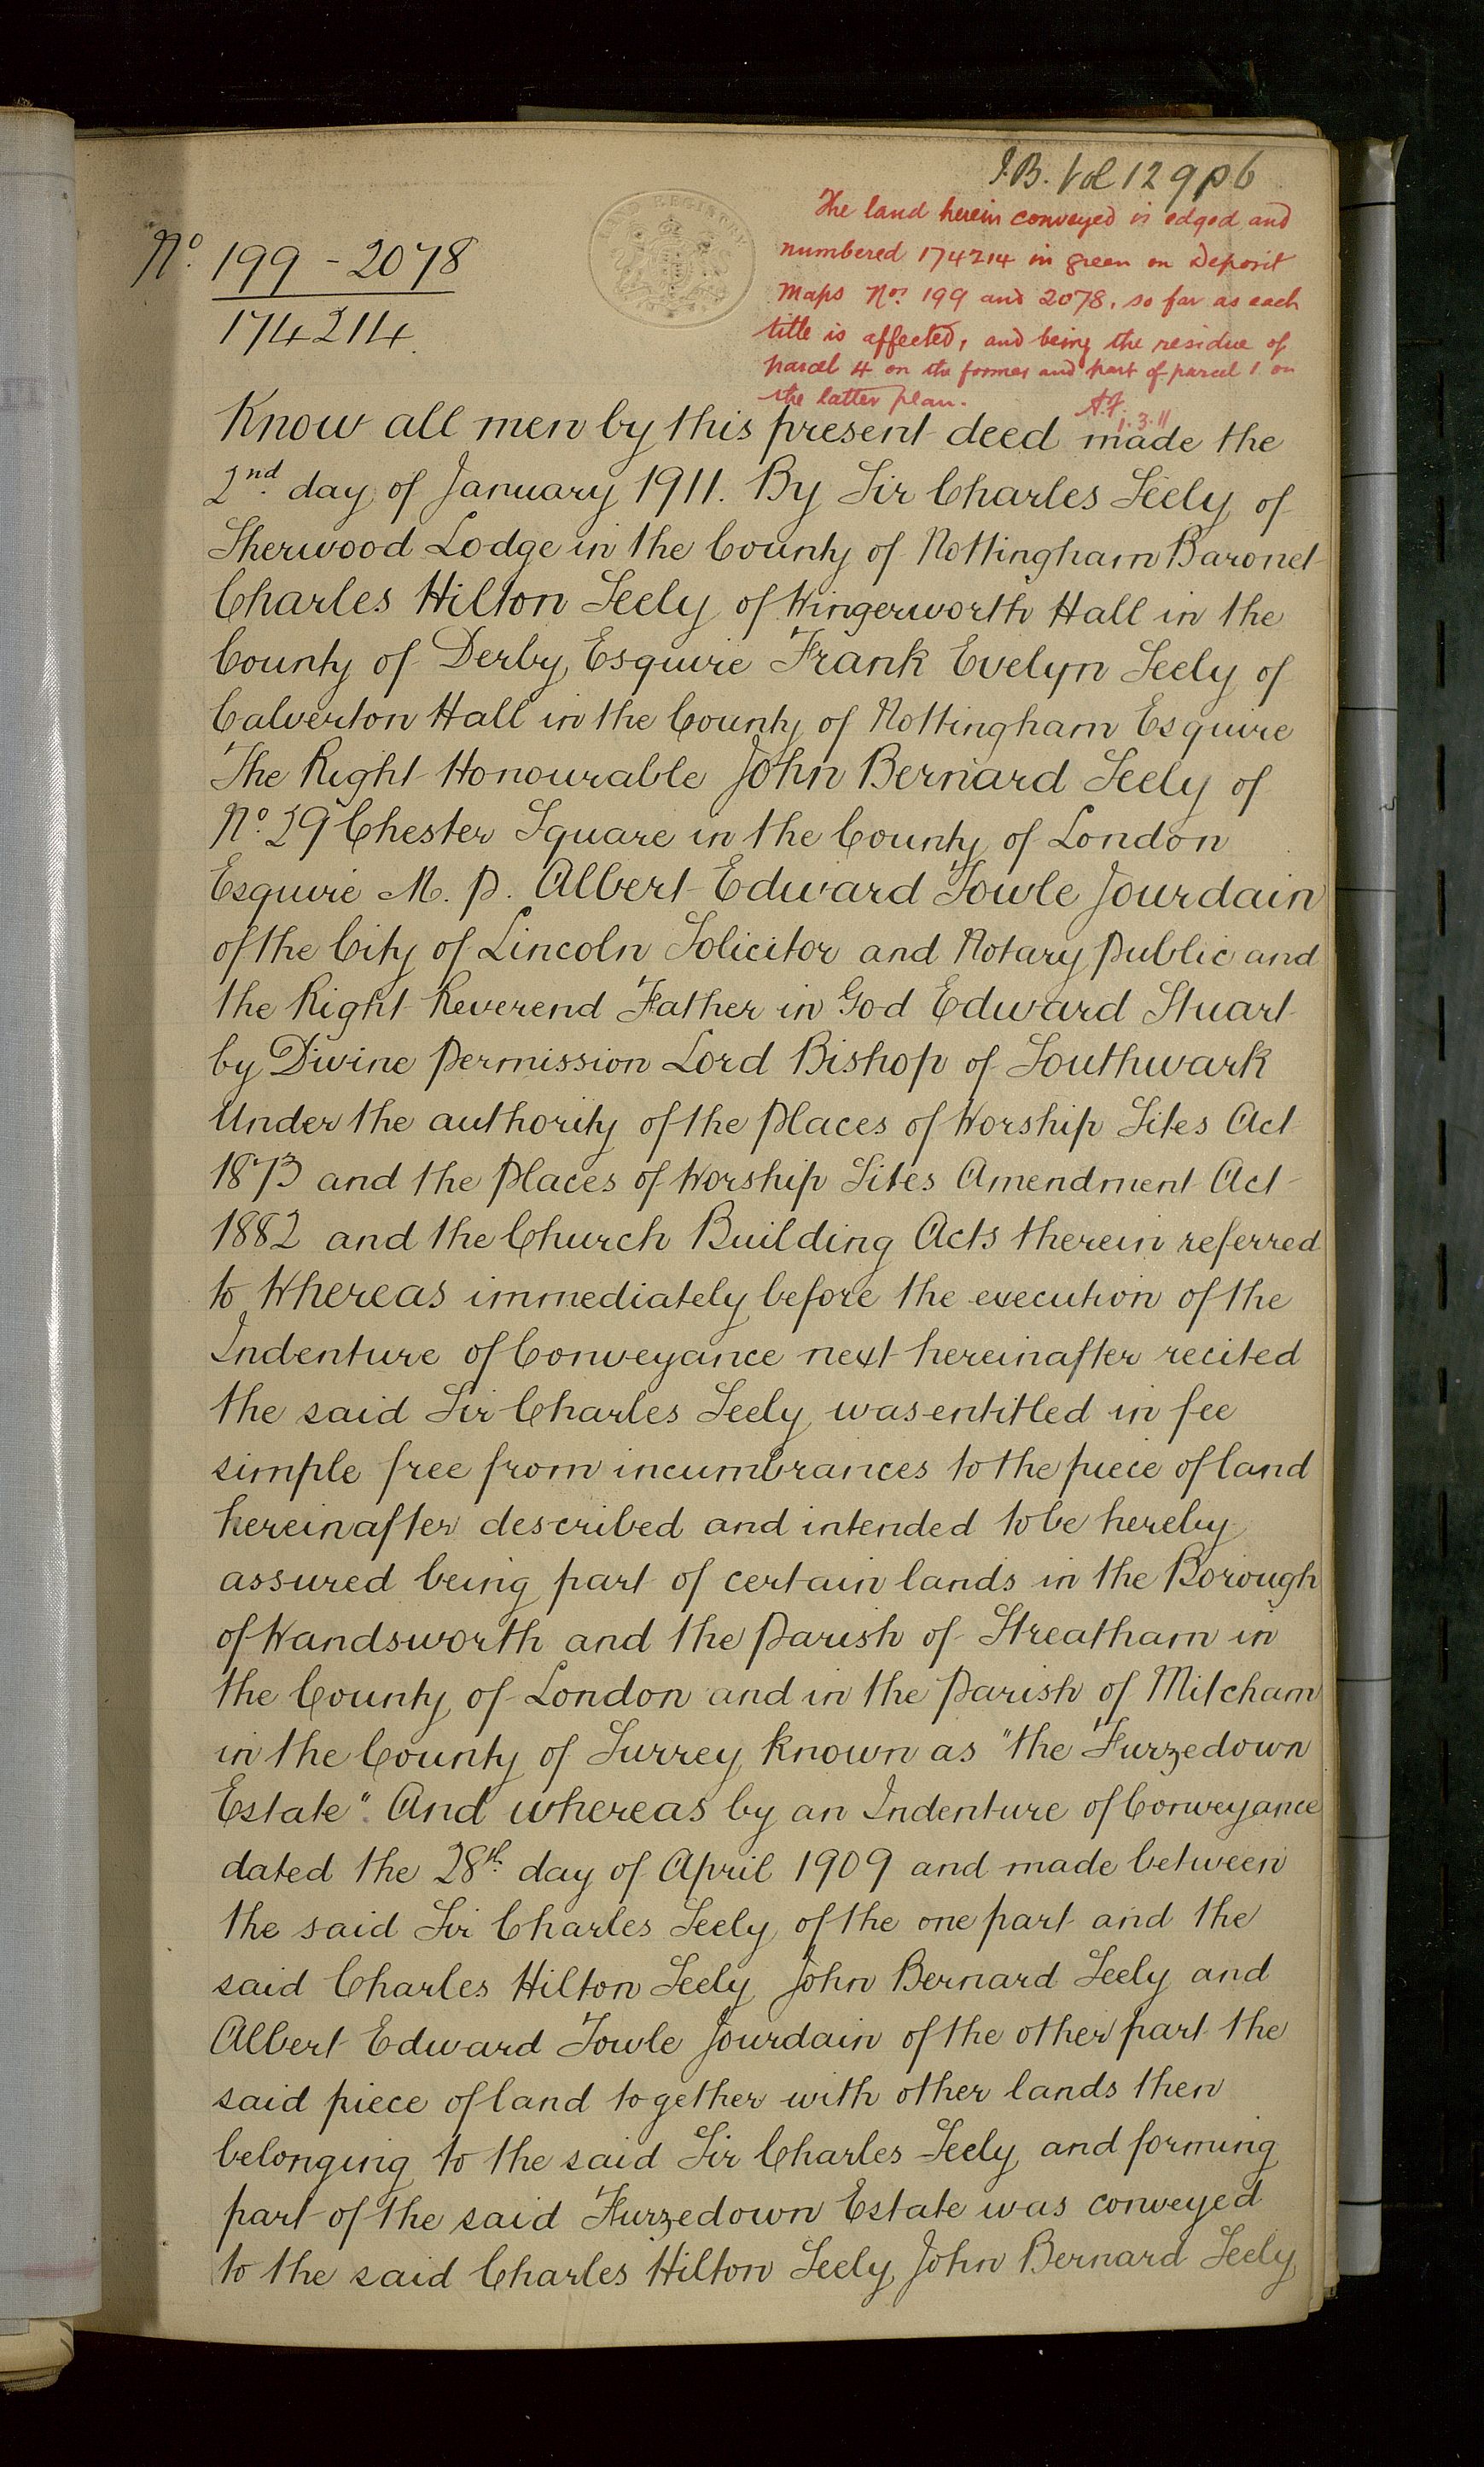 I.B. Vol 129 p6
The land herein conveyed is edged and
numbered 174214 in green on Deposit
Maps Nos. 199 and 2078, so far as each
title is affected, and being the residue of
parcel 4 on the former and part of parcel 1 on
the latter plan.
A.F. 1.3.11
LAND REGISTRY
No. 199 - 2078
174214
Know all men by this present deed made the
2nd. day of January 1911. By Sir Charles Seely of
Sherwood Lodge in the County of Nottingham Baronet
Charles Hilton Seely of Wingerworth Hall in the
County of Derby Esquire Frank Evelyn Seely of
Calverton Hall in the County of Nottingham Esquire
The Right Honourable John Bernard Seely of
No. 29 Chester Square in the County of London
Esquire M. P. Albert Edward Towle Jourdain
of the City of Lincoln Solicitor and Notary Public and
the Right Reverend Father in God Edward Stuart
by Divine Permission Lord Bishop of Southwark
Under the authority of the Places of Worship Sites Act
1873 and the Places of Worship Sites Amendment Act
1882 and the Church Building Acts therein referred
to Whereas immediately before the execution of the
Indenture of Conveyance next hereinafter recited
the said Sir Charles Seely was entitled in fee
simple free from incumbrances to the piece of land
hereinafter described and intended to be hereby
assured being part of certain lands in the Borough
of Wandsworth and the Parish of Streatham in
the County of London and in the Parish of Mitcham
in the County of Surrey known as "the Furzedown
Estate". And whereas by an Indenture of Conveyance
dated the 28th. day of April 1909 and made between
the said Sir Charles Seely of the one part and the
said Charles Hilton Seely John Bernard Seely and
Albert Edward Towle Jourdain of the other part the
said piece of land together with other lands then
belonging to the said Sir Charles Seely and forming
part of the said Furzedown Estate was conveyed
to the said Charles Hilton Seely John Bernard Seely